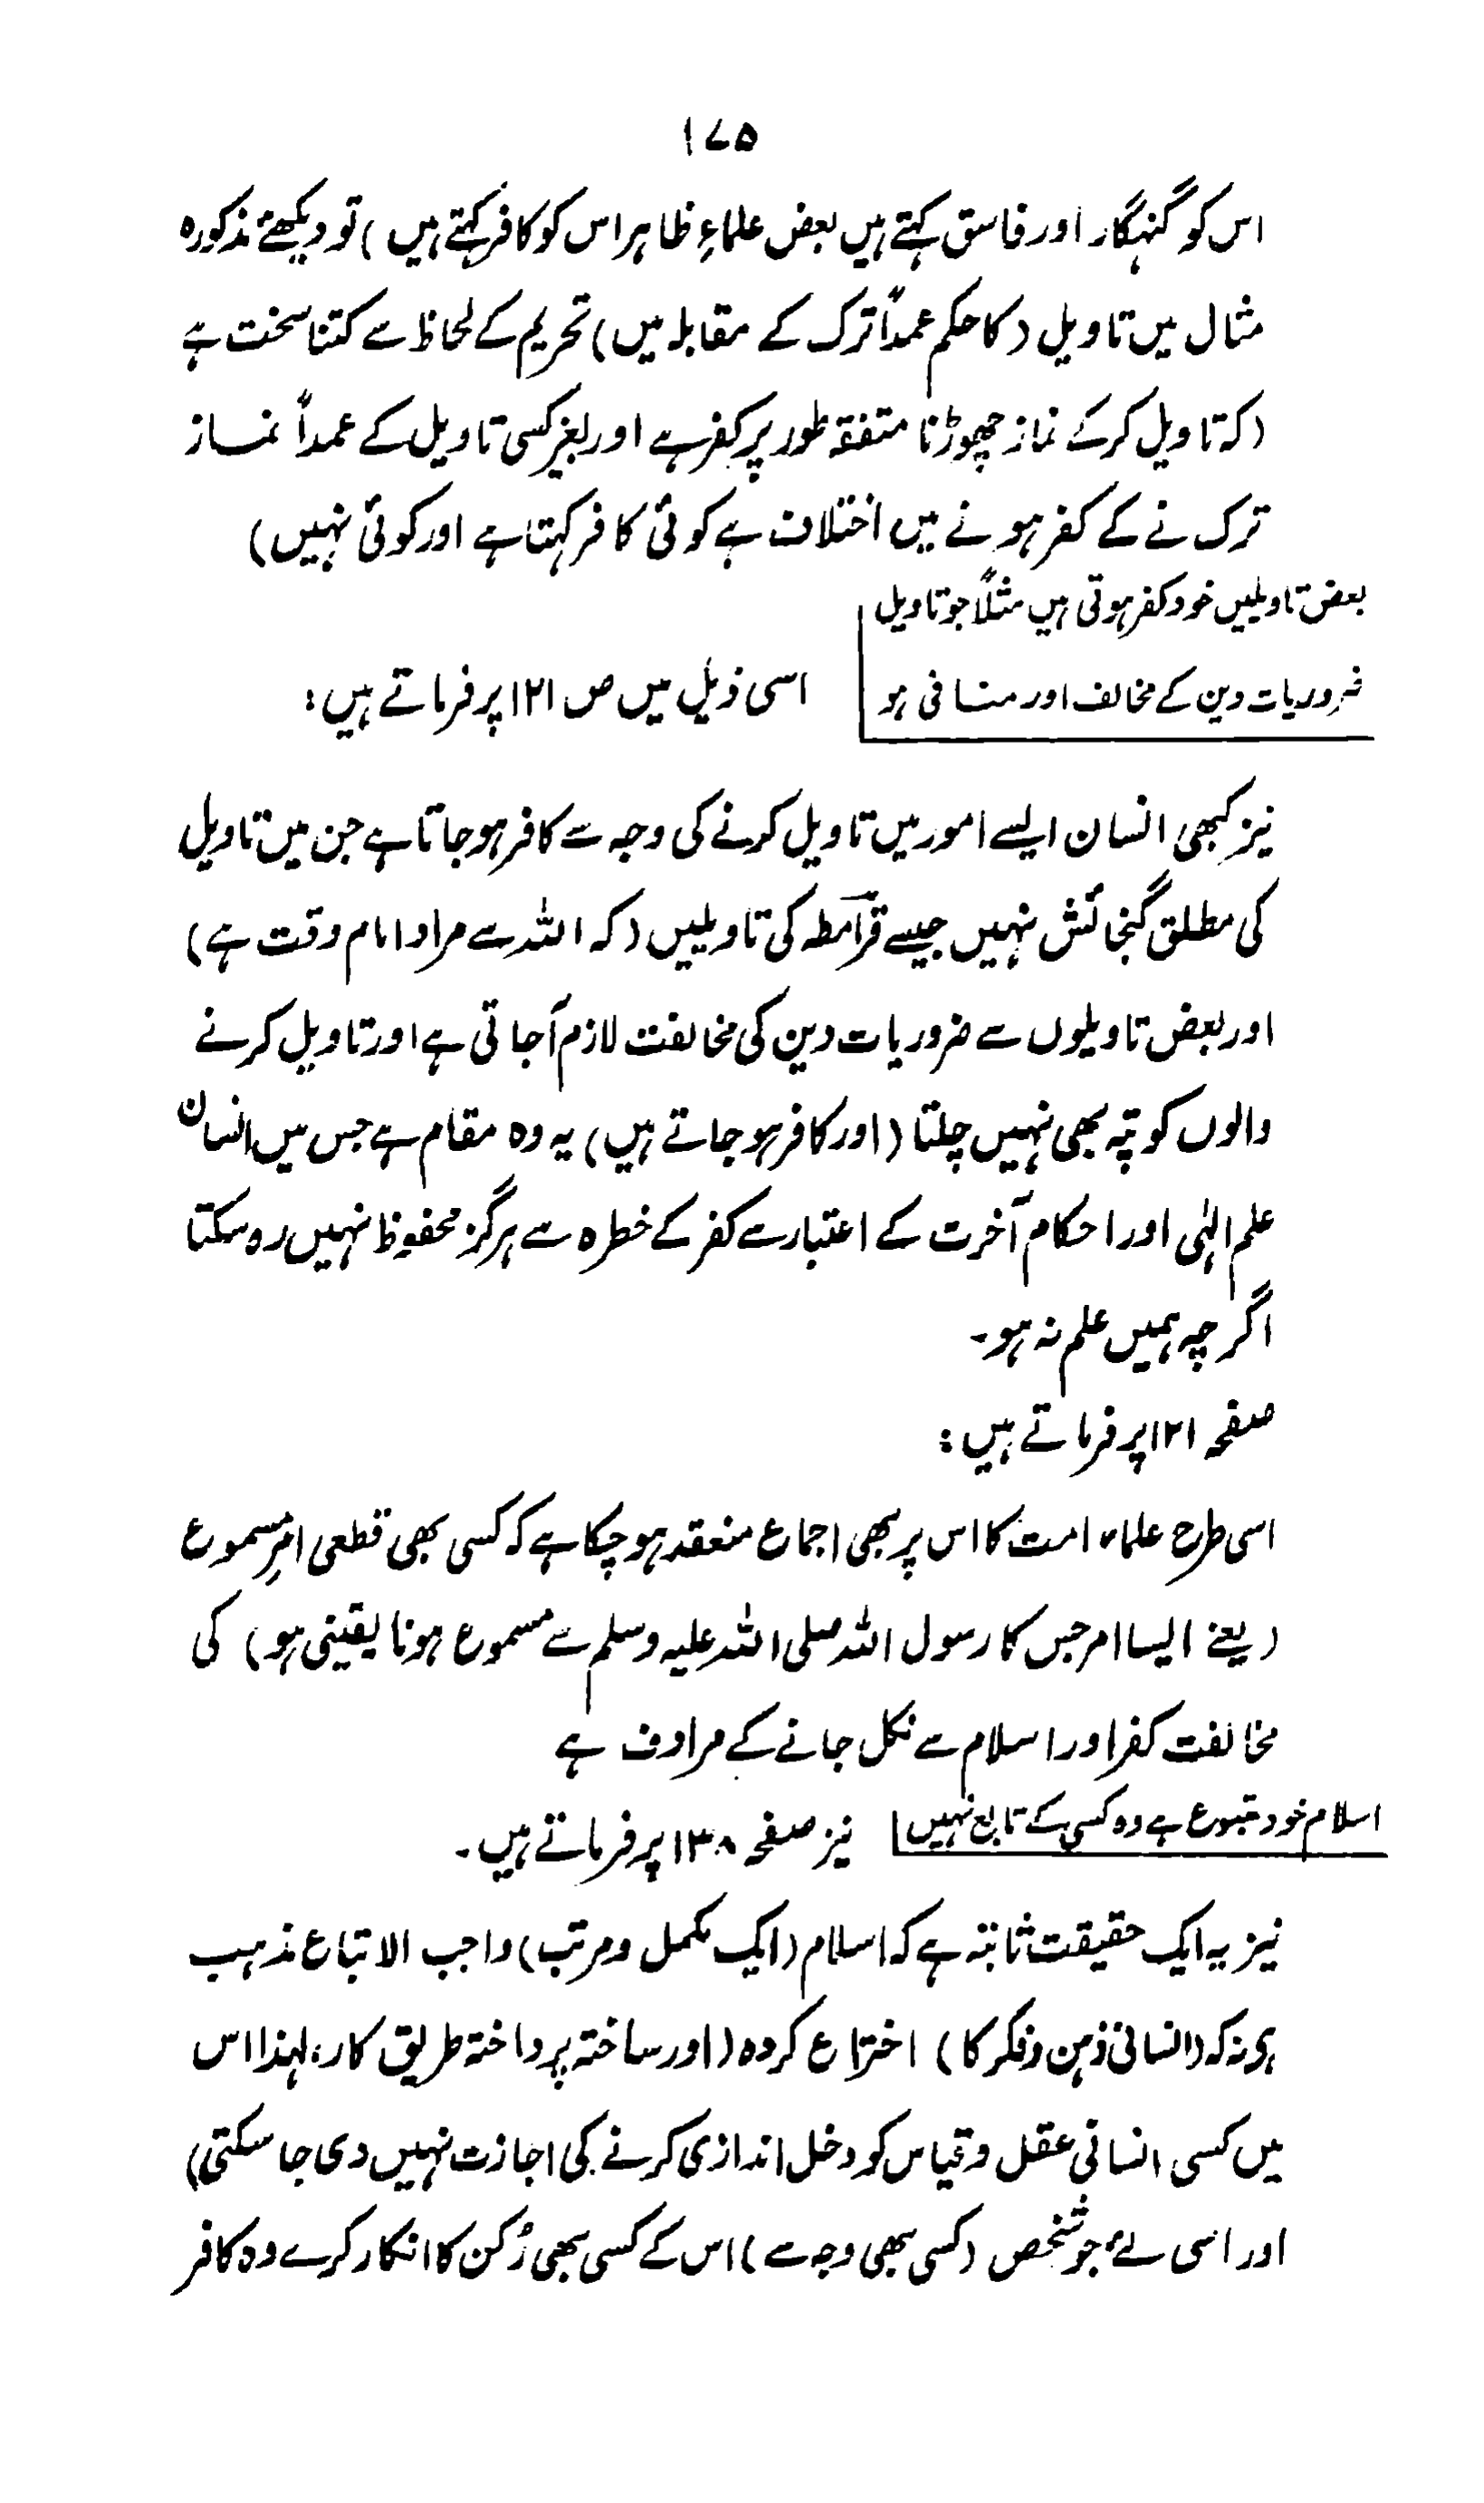 ۱۷۵
اس کو گنہگار اور فاسق کہتے ہیں بعض علماءِ ظاہر اس کو کافر کہتے ہیں) تو دیکھئے مذکورہ
مثال میں تاویل (کا حکم عمداً ترک کے مقابلہ میں) تحریم کے لحاظ سے کتنا سخت ہے
(کہ تاویل کرکے نماز چھوڑنا متفقہ طور پر کفر ہے اور بغیر کسی تاویل کے عمداً نماز
ترک نے کے کفر ہونے میں اختلاف ہے کوئی کافر کہتا ہے اور کوئی نہیں)
بعض تاویلیں خود کفر ہوتی ہیں مثلاً جو تاویل
ضروریات دین کے مخالف اور منافی ہو
اسی ذیل میں ص ۱۲۱ پر فرماتے ہیں:
نیز کبھی انسان ایسے امور میں تاویل کرنے کی وجہ سے کافر ہو جاتا ہے جن میں تاویل
کی مطلق گنجائش نہیں جیسے قرآمطہ کی تاویلیں (کہ اللہ سے مراد امام وقت ہے)
اور بعض تاویلوں سے ضروریات دین کی مخالفت لازم آجاتی ہے اور تاویل کرنے
والوں کو پتہ بھی نہیں چلتا (اور کافر ہو جاتے ہیں) یہ وہ مقام ہے جس میں انسان
علم الٰہی اور احکام آخرت کے اعتبار سے کفر کے خطرہ سے ہرگز محفوظ نہیں رہ سکتا
اگرچہ ہمیں علم نہ ہو۔
صفحہ ۱۲۱ پر فرماتے ہیں:
اسی طرح علماء امت کا اس پر بھی اجماع منعقد ہو چکا ہے کہ کسی بھی قطعی امرِ مسموع
(یعنے ایسا امر جس کا رسول اللہ صلی اللہ علیہ وسلم سے مسموع ہونا یقینی ہو) کی
مخالفت کفر اور اسلام سے نکل جانے کے مرادف ہے
اسلام خود متبوع ہے وہ کسی کے تابع نہیں
نیز صفحہ ۱۳۸ پر فرماتے ہیں۔
نیز یہ ایک حقیقت ثابتہ ہے کہ اسلام (ایک مکمل و مرتب) واجب الاتباع مذہب
ہی نہ کہ (انسانی ذہن و فکر کا) اختراع کردہ (اور ساختہ پرداختہ طریق کار، لہٰذا اس
میں کسی انسانی عقل و قیاس کو دخل اندازی کرنے کی اجازت نہیں دی جا سکتی)
اور اسی لئے جو شخص (کسی بھی وجہ سے) اس کے کسی بھی رُکن کا انکار کرے وہ کافر